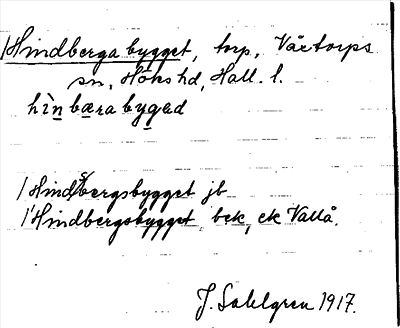 Hindberga bygget, torp, Våxtorps
sn, Höks hd, Hall. l.
hìn bæra bygəd
Hindsbergsbygget jb
Hindbergsbygget, bek, ek Vallå.
J. Sahlgren 1917.